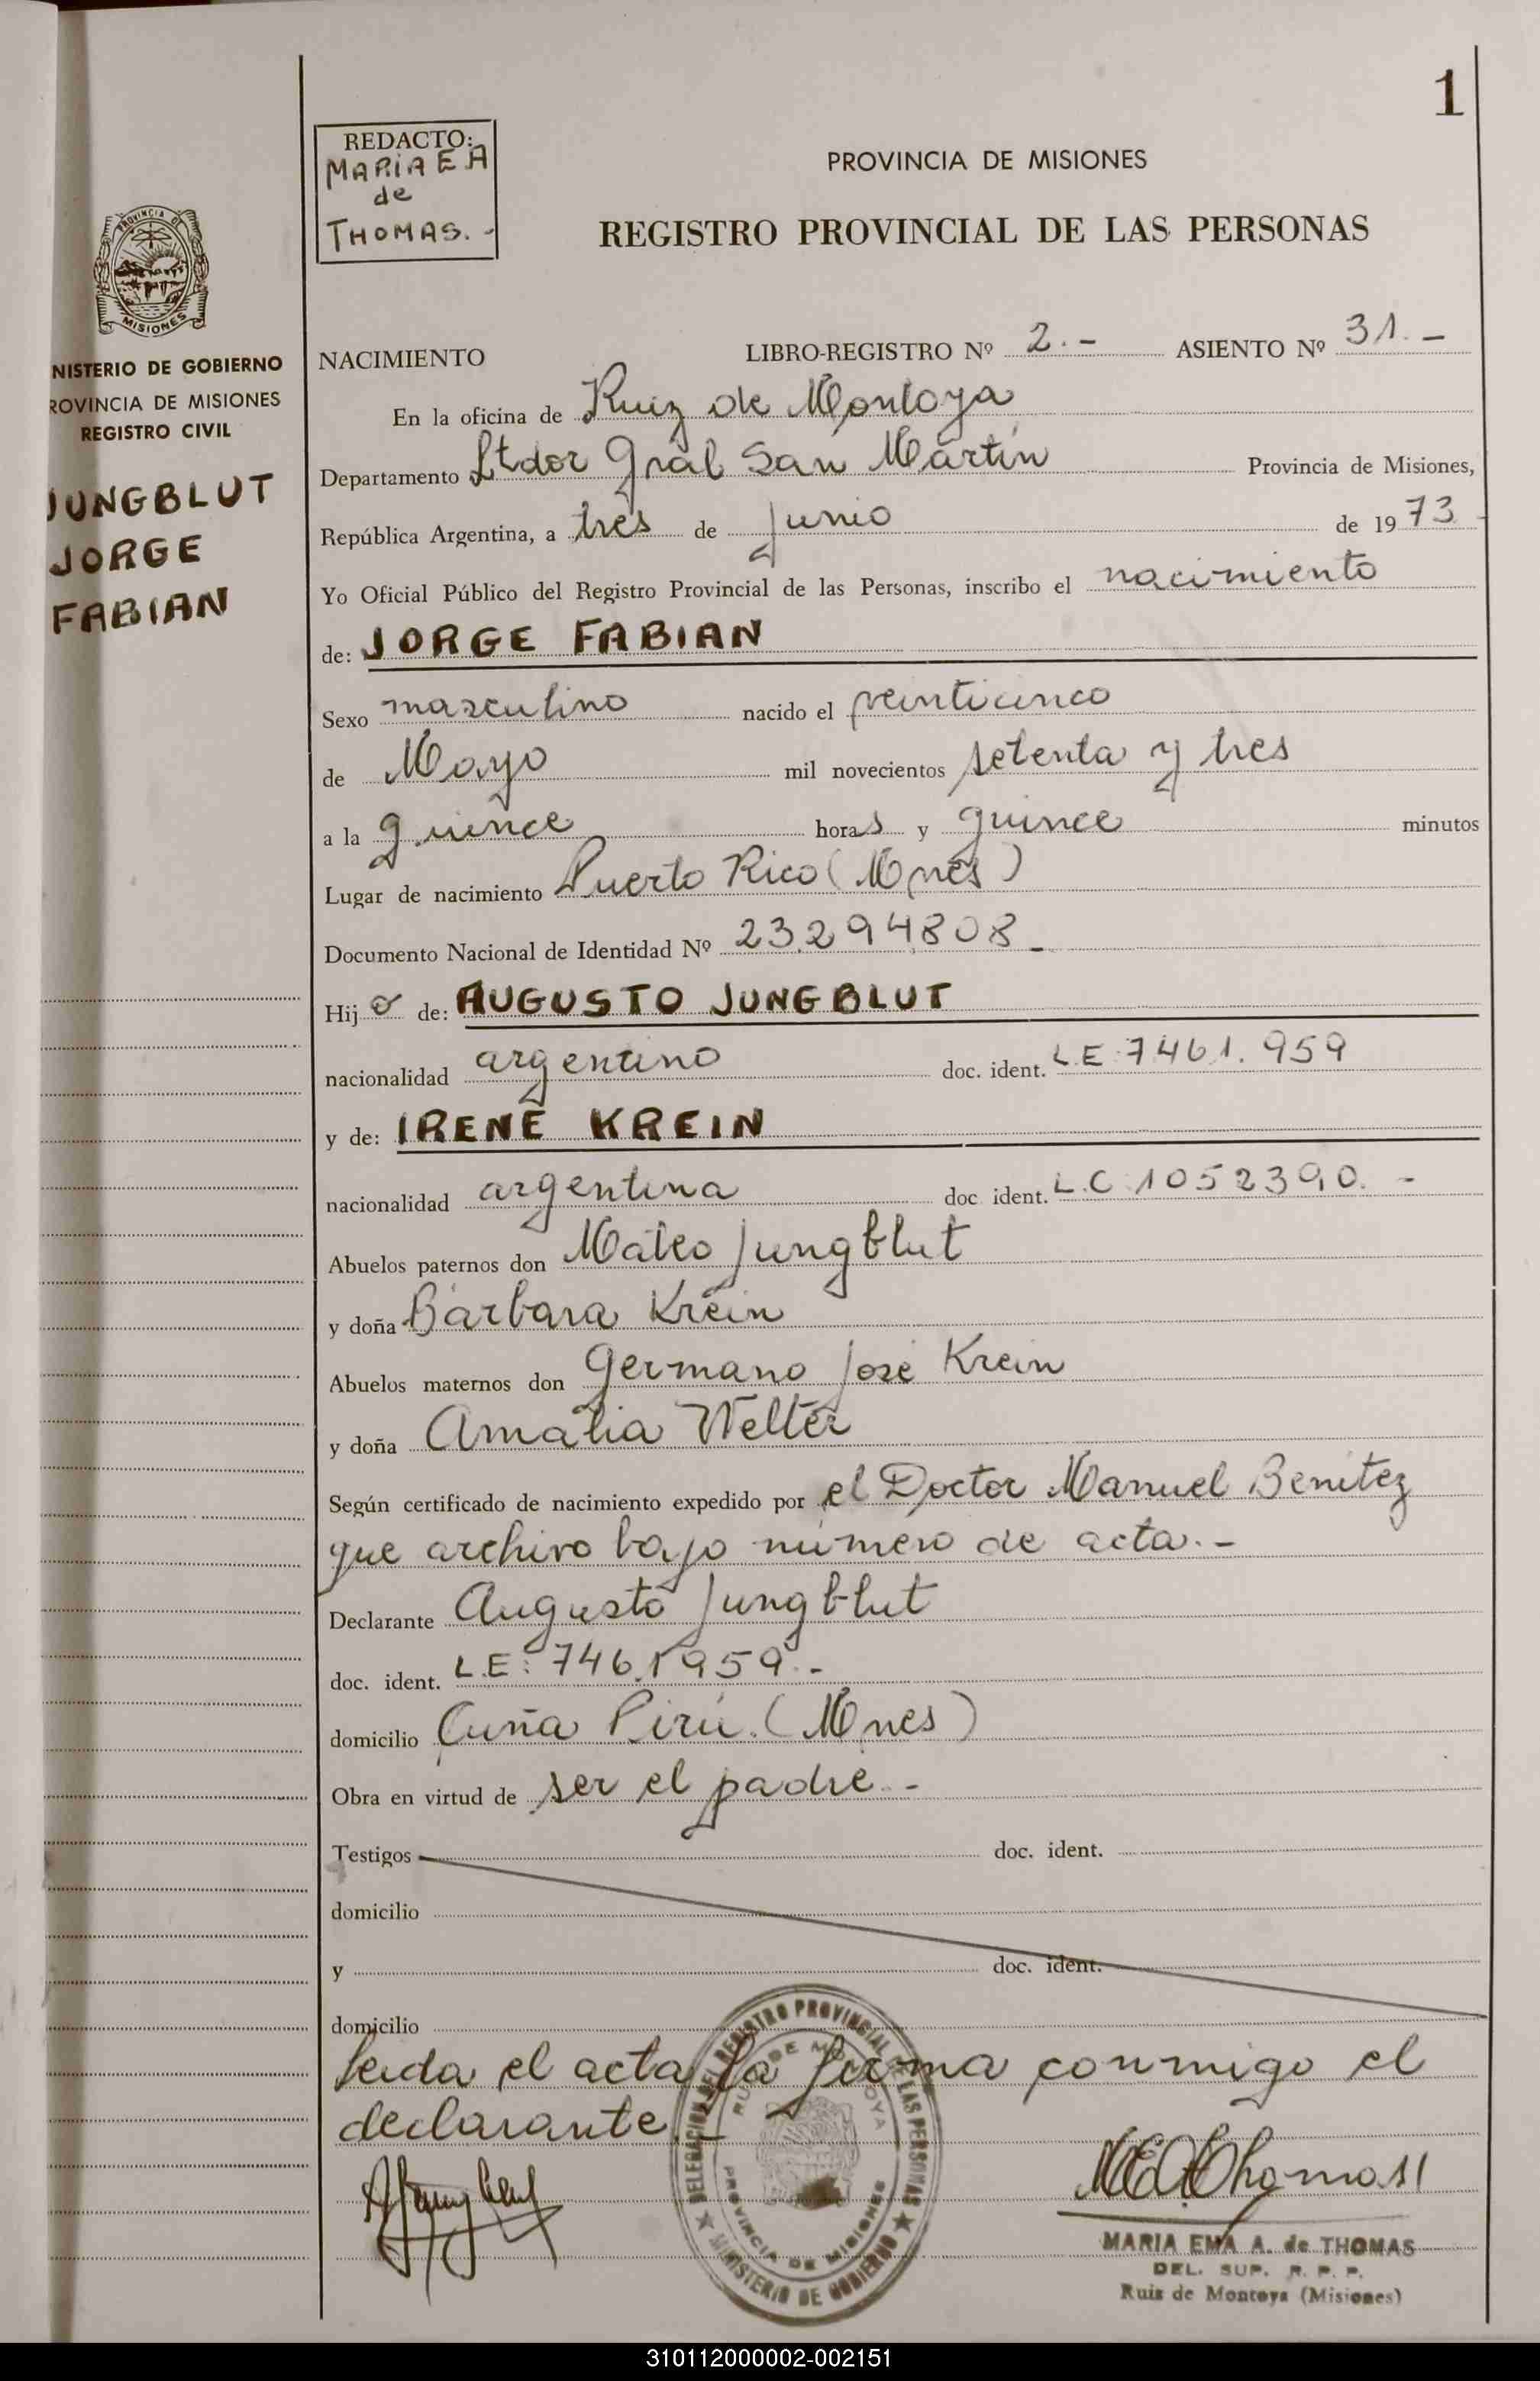 1
REDACTO:
MARIA E A
de
THOMAS.-
PROVINCIA DE MISIONES
REGISTRO PROVINCIAL DE LAS PERSONAS
PROVINCIA DE
MISIONES
NISTERIO DE GOBIERNO
ROVINCIA DE MISIONES
REGISTRO CIVIL
JUNGBLUT
JORGE
FABIAN
NACIMIENTO LIBRO-REGISTRO Nº 2.- ASIENTO Nº 31.-
En la oficina de Ruiz de Montoya
Departamento Ltdor Gral San Martín Provincia de Misiones,
República Argentina, a tres de Junio de 1973
Yo Oficial Público del Registro Provincial de las Personas, inscribo el nacimiento
de: JORGE FABIAN
Sexo masculino nacido el veinticinco
de Mayo mil novecientos setenta y tres
a la quince horas y quince minutos
Lugar de nacimiento Puerto Rico (Mnes)
Documento Nacional de Identidad Nº 23.294.808-
Hijo de: AUGUSTO JUNGBLUT
nacionalidad argentino doc. ident. L.E. 7461.959
y de: IRENE KREIN
nacionalidad argentina doc ident. L.C 1052390.-
Abuelos paternos don Mateo Jungblut
y doña Bárbara Krein
Abuelos maternos don Germano José Krein
y doña Amalia Welter
Según certificado de nacimiento expedido por el Doctor Manuel Benitez
que archivo bajo número de acta.-
Declarante Augusto Jungblut
doc. ident. L.E: 7461959.-
domicilio Cuña Pirú (Mnes)
Obra en virtud de ser el padre.-
Testigos doc. ident.
domicilio
y doc. ident.
domicilio
Leida el acta la firma conmigo el
declarante.-
DELEGACION DEL REGISTRO PROVINCIAL DE LAS PERSONAS
RUIZ DE MONTOYA
PROVINCIA DE MISIONES
MINISTERIO DE GOBIERNO
AJungblut
MEAThomas
MARIA EMA A. de THOMAS
DEL. SUP. R. P. P.
Ruiz de Montoya (Misiones)
310112000002-002151